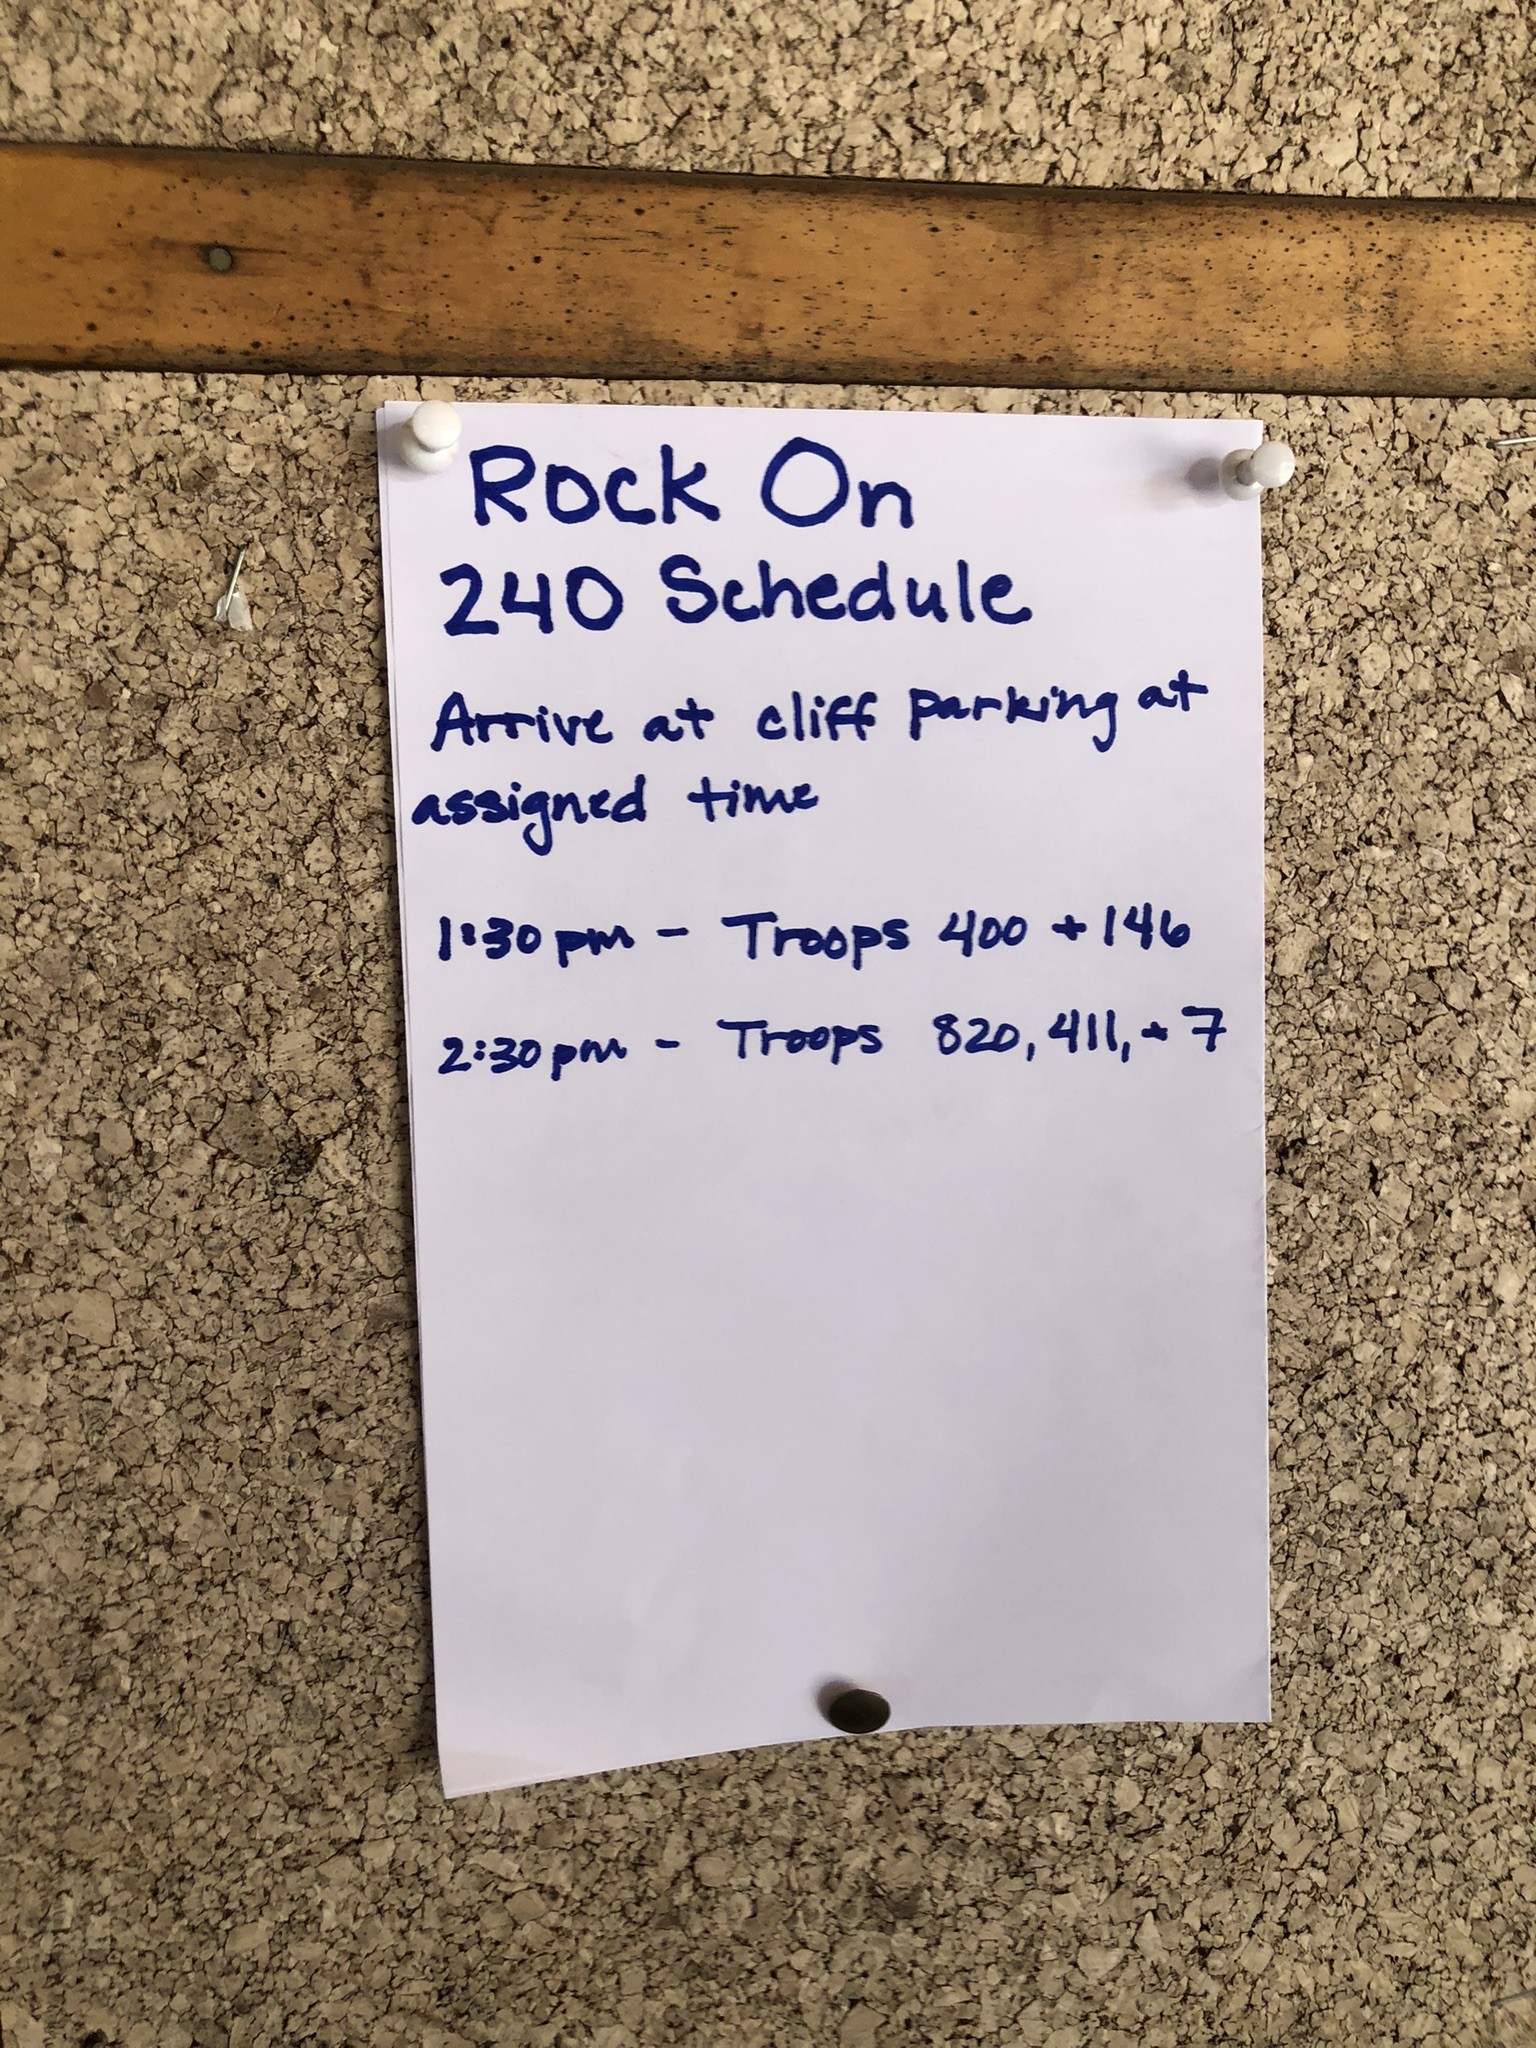 Rock On
240 Schedule
Arrive at cliff parking at
assigned time
1:30pm - Troops 400 + 146
2:30pm - Troops 820, 411, + 7